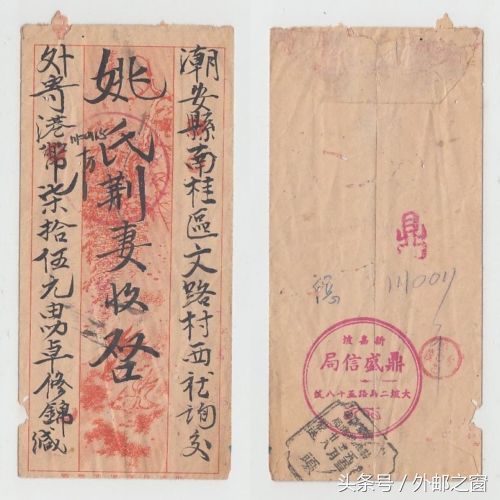 潮安縣南桂區文路村西社詢交
姚氏荆妻收啓
外寄港幣柒拾伍元由功卓修錦緘
鼎
新嘉坡
鼎盛信局
大坡二馬路五十八號
頭条号/外邮之窗